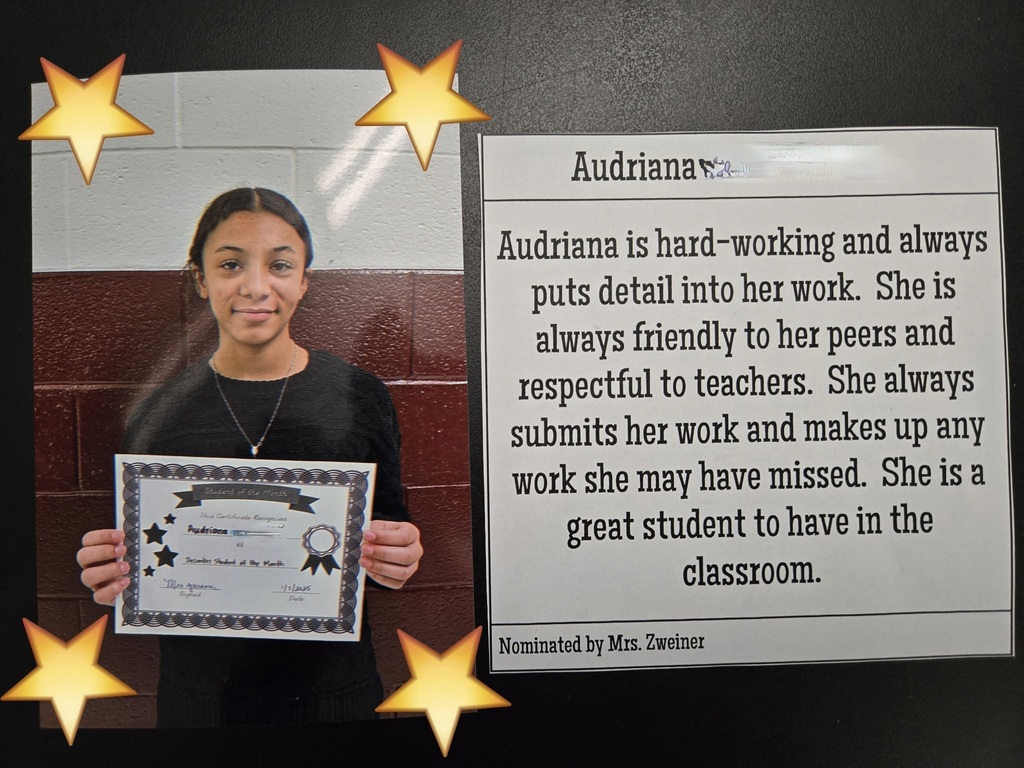 Student of the Month
This Certificate Recognizes
Audriana
as
December Student of the Month
Mrs.
1/7/2025
Signed
Date
Audriana
Audriana is hard-working and always
puts detail into her work. She is
always friendly to her peers and
respectful to teachers. She always
submits her work and makes up any
work she may have missed. She is a
great student to have in the
classroom.
Nominated by Mrs. Zweiner